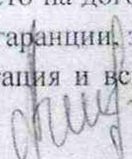 то на дог
гаранции,
тация и вс